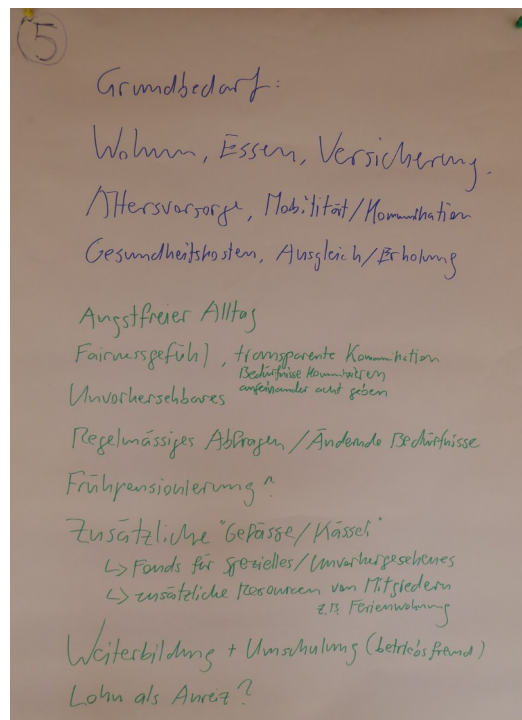 5
Grundbedarf:
Wohnen, Essen, Versicherung.
Altersvorsorge, Mobilität/Kommunikation
Gesundheitskosten, Ausgleich/Erholung
Angstfreier Alltag
Fairnessgefühl, transparente Kommunikation
Bedürfnisse kommunizieren
aufeinander acht geben
Unvorhersehbares
Regelmässiges Abfragen/Ändernde Bedürfnisse
Frühpensionierung?
Zusätzliche "Gefässe/Kässeli"
↳ Fonds für spezielles/Unvorhergesehenes
↳ zusätzliche Resourcen von Mitgliedern
z.B. Ferienwohnung
Weiterbildung + Umschulung (betriebsfremd)
Lohn als Anreiz?